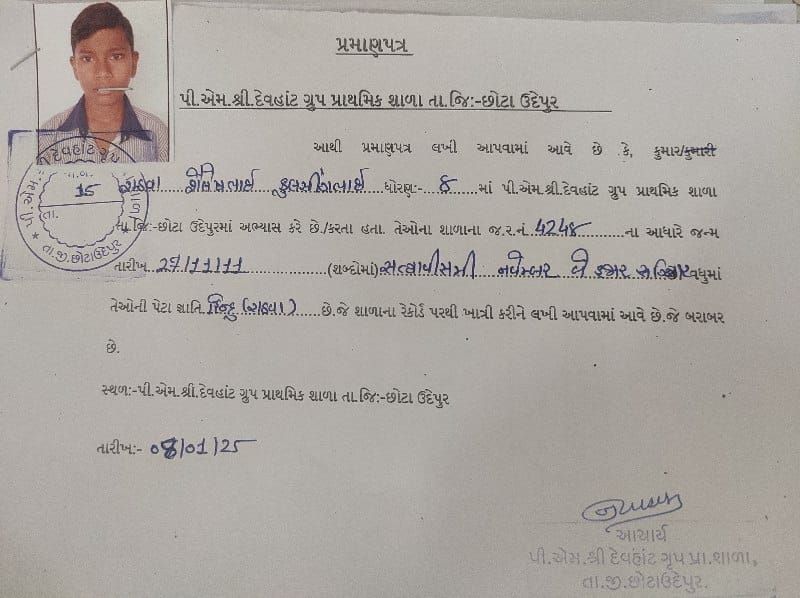 પ્રમાણપત્ર
પી.એમ.શ્રી.દેવહાંટ ગ્રુપ પ્રાથમિક શાળા તા.જિ:-છોટા ઉદેપુર
આથી પ્રમાણપત્ર લખી આપવામાં આવે છે કે, કુમાર/કુમારી
રાઠવા શૈલેષભાઈ ધોરણ:- ૮ માં પી.એમ.શ્રી.દેવહાંટ ગ્રુપ પ્રાથમિક શાળા
તા.જિ:-છોટા ઉદેપુરમાં અભ્યાસ કરે છે./કરતા હતા. તેઓના શાળાના જ.ર.નં. ના આધારે જન્મ
તારીખ (શબ્દોમાં) સત્તાવીસમી નવેમ્બર બે હજાર અગિયાર વધુમાં
તેઓની પેટા જ્ઞાતિ હિન્દુ (રાઠવા) છે.જે શાળાના રેકોર્ડ પરથી ખાત્રી કરીને લખી આપવામાં આવે છે.જે બરાબર
છે.
સ્થળ:-પી.એમ.શ્રી.દેવહાંટ ગ્રુપ પ્રાથમિક શાળા તા.જિ:-છોટા ઉદેપુર
તારીખ:- 08/01/25
આચાર્ય
પી.એમ.શ્રી દેવહાંટ ગૃપ પ્રા.શાળા,
તા.જી.છોટાઉદેપુર.